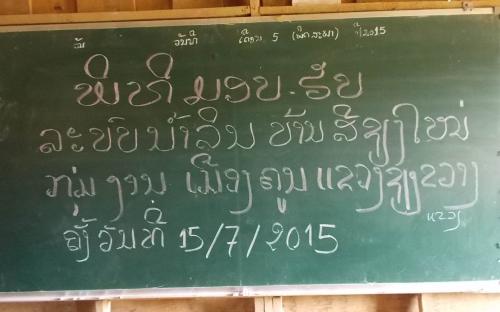 ວັນ ວັນທີ ເດືອນ 5 (ພຶດສະພາ) ປີ2015
ພິທີ ມອບ-ຮັບ
ລະບົບນ້ຳລິນ ບ້ານ ສີຊຽງໃໝ່
ກຸ່ມ ງານ ເມືອງ ຄູນ ແຂວງຊຽງຂວາງ
ແຂວງ
ຄັ້ງ ວັນທີ່ 15/7/2015